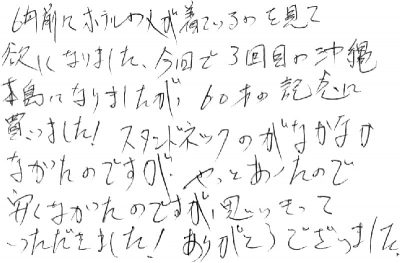 6年前にホテルの人が着ているのを見て
欲しくなりました、今回で3回目の沖縄
本島になりましたが、60才の記念に
買いました! スタンドネックのがなかなか
なかったのですが、やっとあったので
安くなかったのですが、思いきって
いただきました! ありがとうございました。